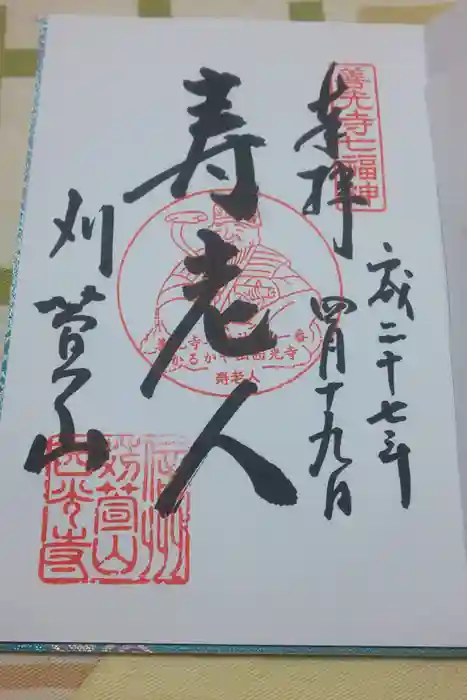 善光寺七福神
奉拝
成二十七年
四月十九日
寿老人
善光寺
一番
かるかや山西光寺
寿老人
刈萱山
信州
苅萱山
西光寺